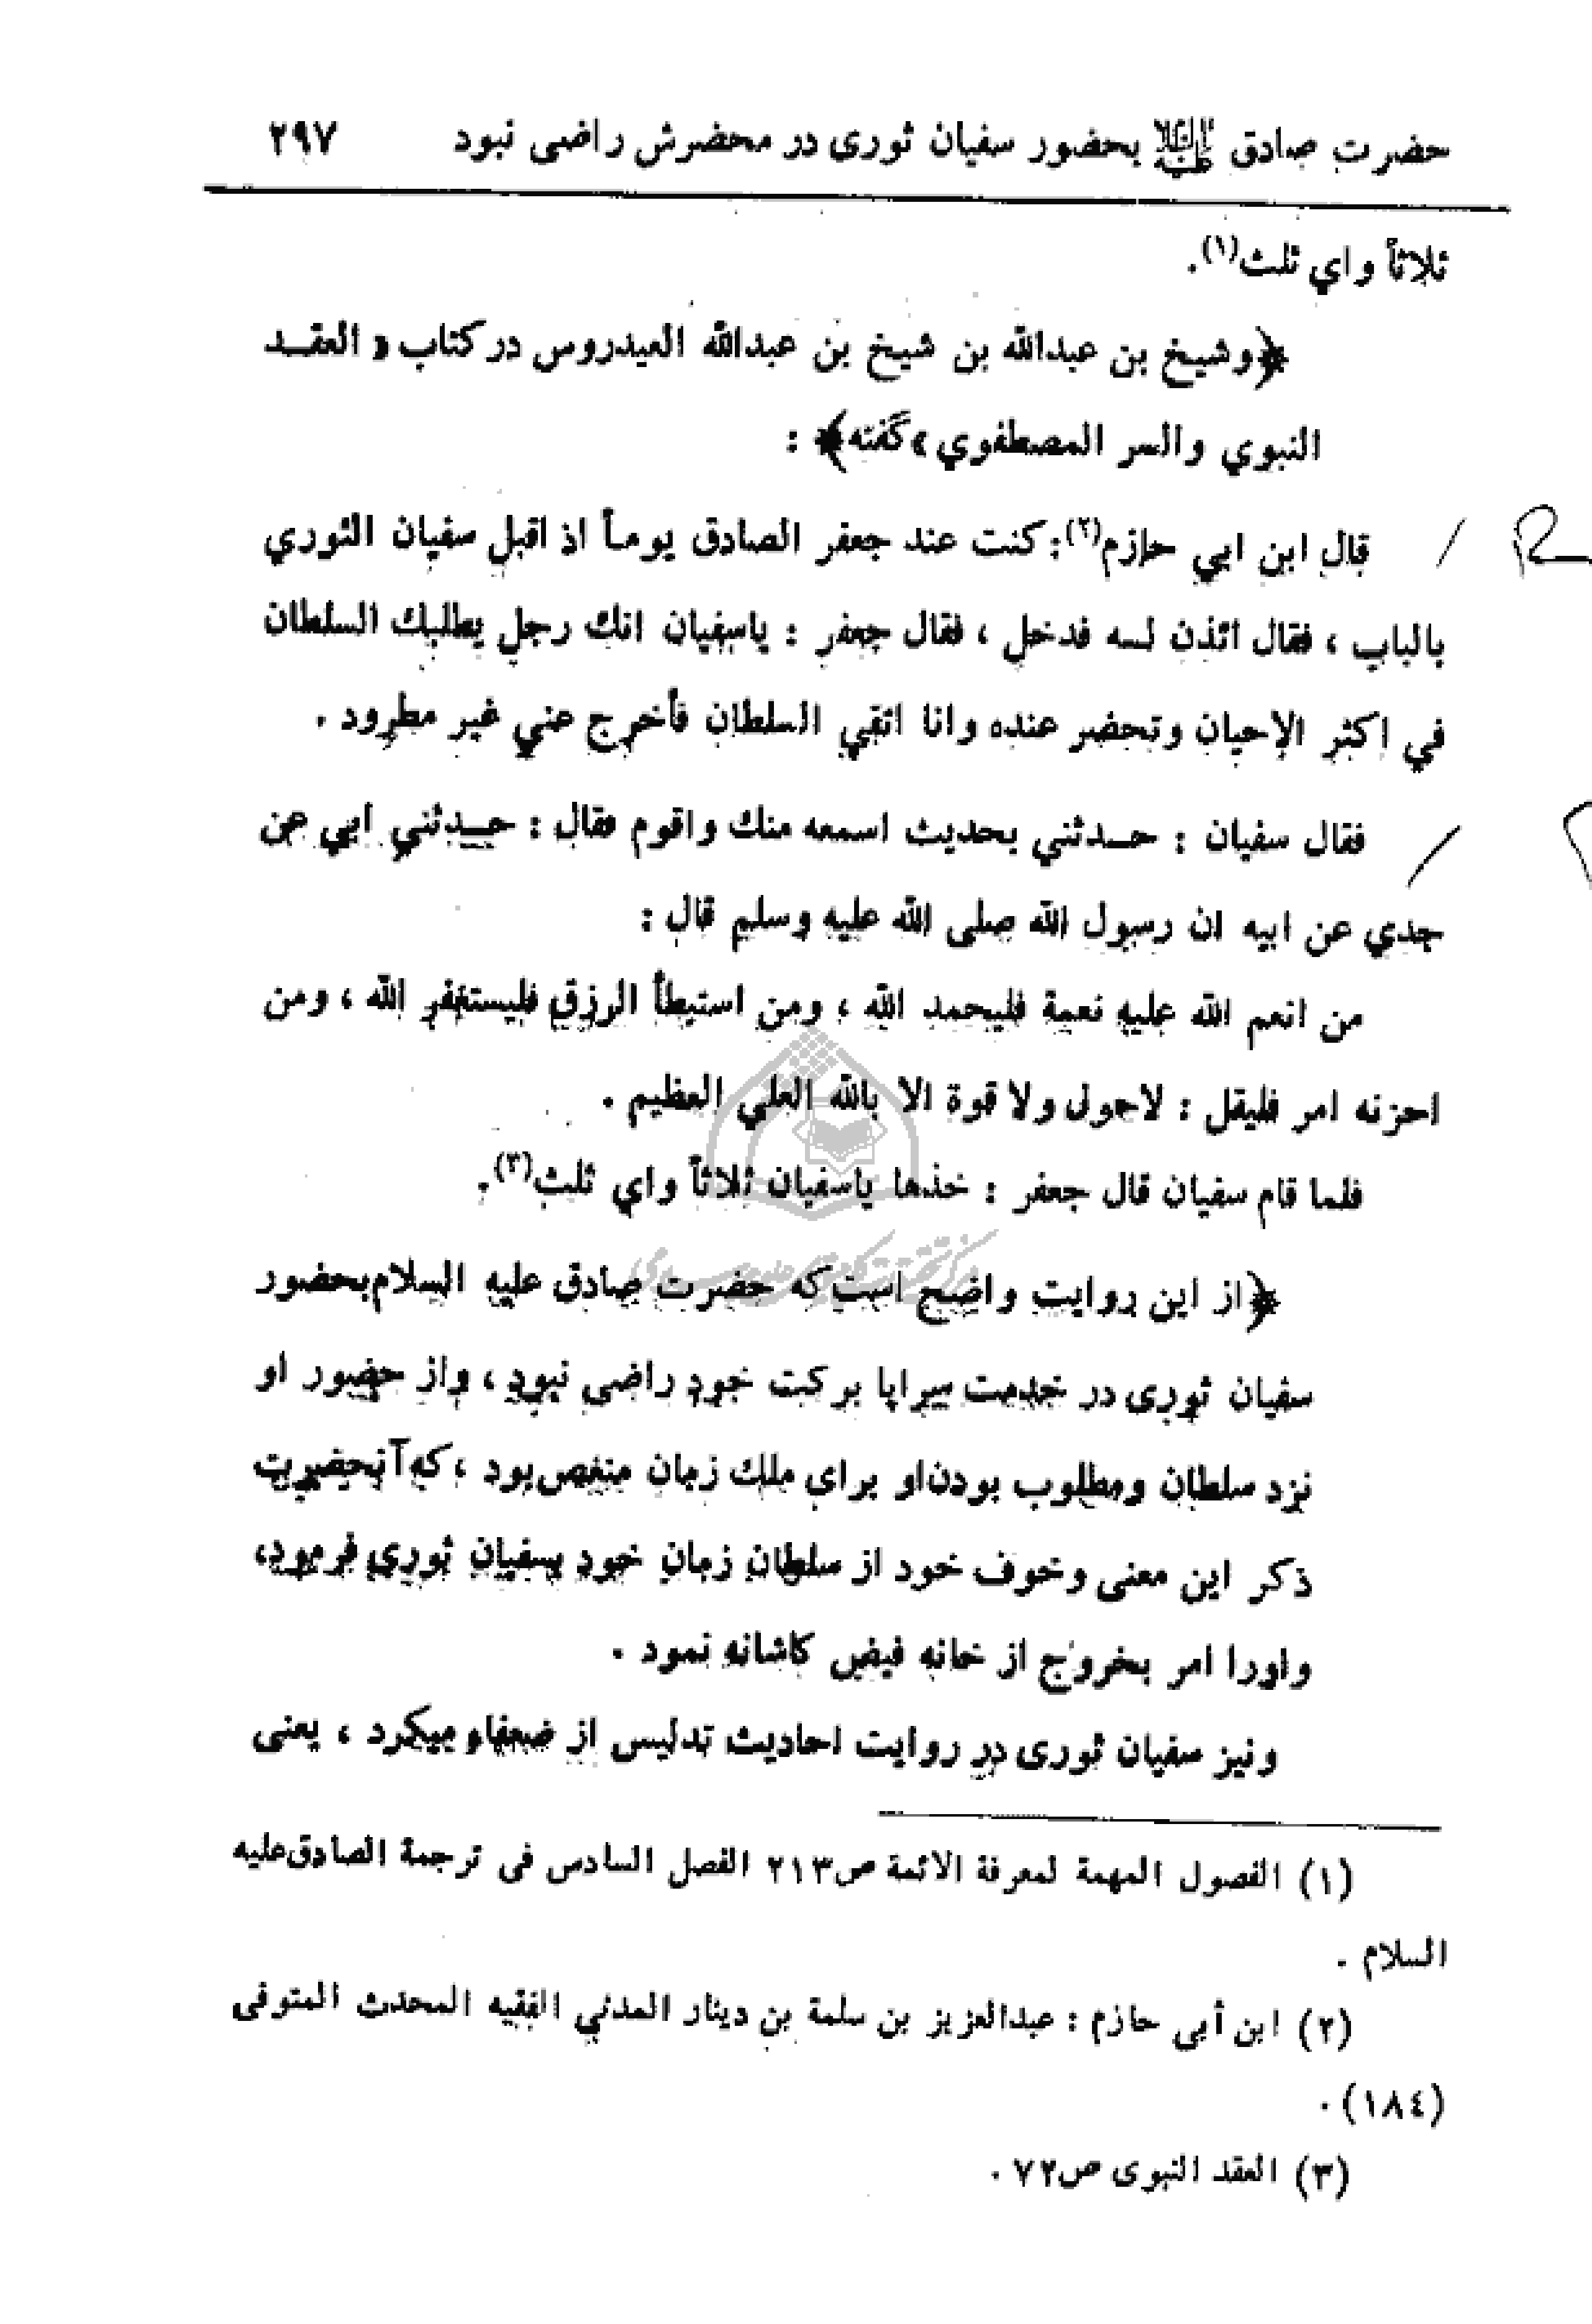 حضرت صادق علیه السلام بحضور سفیان ثوری در محضرش راضی نبود ۲۹۷
ثلاثاً واي ثلث(۱).
﴿وشيخ بن عبدالله بن شيخ بن عبدالله العيدروس در كتاب « العقــد
النبوي والسر المصطفوي » گفته﴾ :
قال ابن ابي حازم(۲): كنت عند جعفر الصادق يومـاً اذ اقبل سفيان الثوري
بالباب ، فقال ائذن لـه فدخل ، فقال جعفر : ياسفيان انك رجل يطلبك السلطان
في اكثر الاحيان وتحضر عنده وانا اتقي السلطان فأخرج عني غير مطرود .
فقال سفيان : حـدثني بحديث اسمعه منك واقوم فقال : حــدثني ابي عن
جدي عن ابيه ان رسول الله صلى الله عليه وسلم قال :
من انعم الله عليه نعمة فليحمد الله ، ومن استبطأ الرزق فليستغفر الله ، ومن
احزنه امر فليقل : لاحول ولا قوة الا بالله العلي العظيم .
فلما قام سفيان قال جعفر : خذها ياسفيان ثلاثاً واي ثلث(۳).
﴿از این روایت واضح است که حضرت صادق علیه السلام بحضور
سفیان ثوری در خدمت سراپا برکت خود راضی نبود ، واز حضور او
نزد سلطان ومطلوب بودن او برای ملك زمان منغص بود ، که آنحضرت
ذکر این معنی وخوف خود از سلطان زمان خود بسفیان ثوری فرمود،
واورا امر بخروج از خانه فیض کاشانه نمود .
ونیز سفیان ثوری در روایت احادیث تدلیس از ضعفاء میکرد ، یعنی
(۱) الفصول المهمة لمعرفة الائمة ص۲۱۳ الفصل السادس فى ترجمة الصادق عليه
السلام .
(۲) ابن أبى حازم : عبدالعزيز بن سلمة بن دينار المدني الفقيه المحدث المتوفى
(١٨٤) .
(۳) العقد النبوى ص۷۲ .